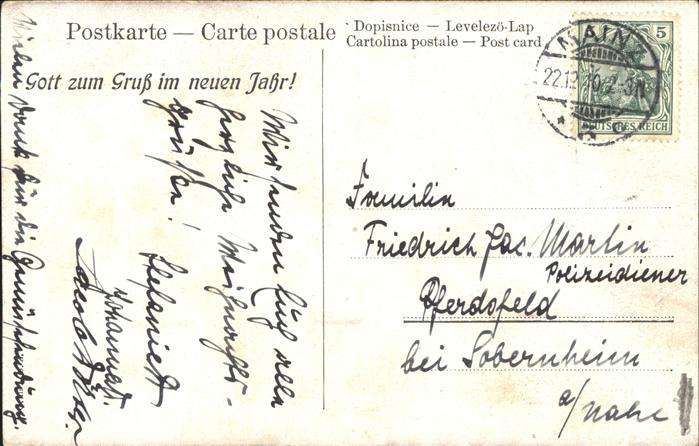 Postkarte — Carte postale
Dopisnice — Levelező-Lap
Cartolina postale — Post card
Gott zum Gruß im neuen Jahr!
MAINZ
22.12.10. 2-3N
5
DEUTSCHES REICH
Wir senden Euch allen
herzliche Weihnachts-
grüße!
Johannet.
Jacob
Vielen Dank für die
Familie
Friedrich Jac. Martin
Polizeidiener
Pferdsfeld
bei Sobernheim
a/Nahe